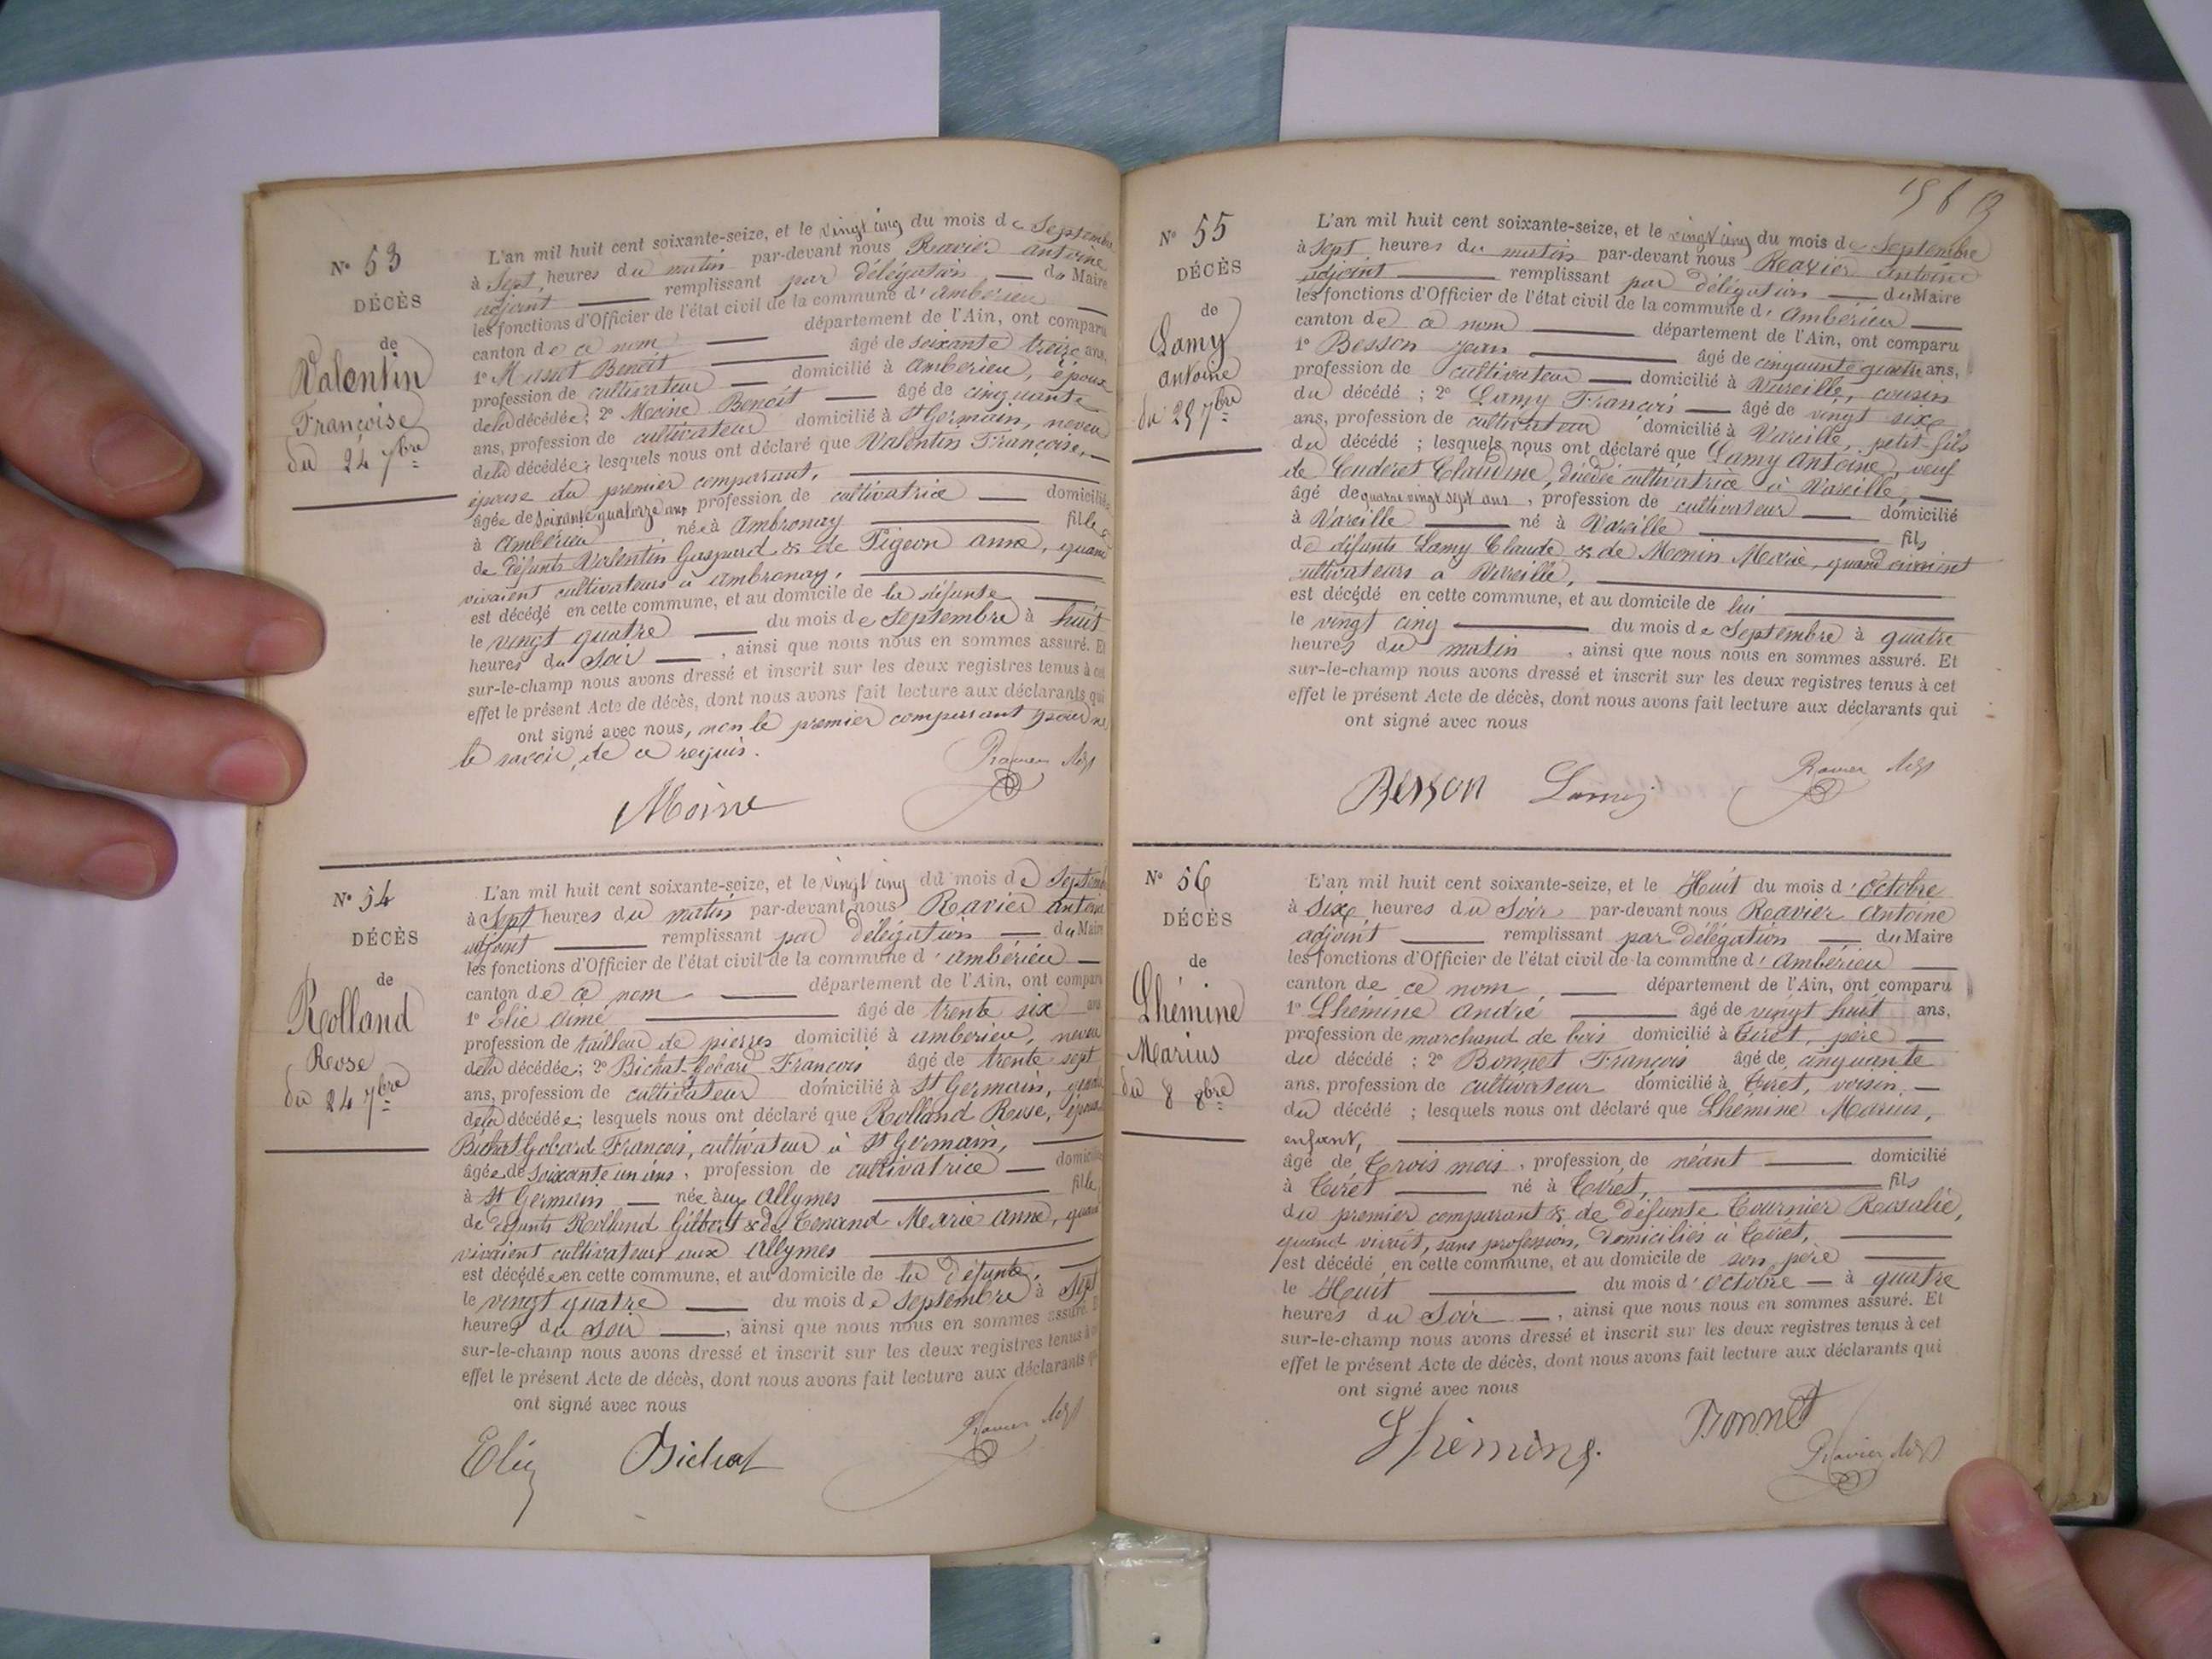 N° 53
DÉCÈS
de
Valentin
Françoise
du 24 7bre
L'an mil huit cent soixante-seize, et le vingt cinq du mois de Septembre
à Sept heures du matin par-devant nous Ravier antoine
adjoint remplissant par délégation du Maire
les fonctions d'Officier de l'état civil de la commune d'ambérieu
canton de ce nom département de l'Ain, ont comparu
1° Benoit âgé de soixante treize ans,
profession de cultivateur domicilié à ambérieu, époux
de la décédée; 2° Moine Benoit âgé de cinquante
ans, profession de cultivateur domicilié à St Germain, neveu
de la décédée; lesquels nous ont déclaré que Valentin Françoise,
épouse du premier comparant,
âgée de soixante quatorze ans profession de cultivatrice domiciliée
à ambérieu née à ambronay fille
de défunts Valentin Gaspard & de Pigeon anne, quand
vivaient cultivateurs à ambronay,
est décédé en cette commune, et au domicile de la défunte
le vingt quatre du mois de Septembre à huit
heures du Soir, ainsi que nous nous en sommes assuré. Et
sur-le-champ nous avons dressé et inscrit sur les deux registres tenus à cet
effet le présent Acte de décès, dont nous avons fait lecture aux déclarants qui
ont signé avec nous, non le premier comparant pour ne
le savoir, de ce requis.
Moine Ravier adjt
N° 54
DÉCÈS
de
Rolland
Rose
du 24 7bre
L'an mil huit cent soixante-seize, et le vingt cinq du mois de Septemb
à Sept heures du matin par-devant nous Ravier antoine
adjoint remplissant par délégation du Maire
les fonctions d'Officier de l'état civil de la commune d'ambérieu
canton de ce nom département de l'Ain, ont comparu
1° Elie aimé âgé de trente six ans
profession de tailleur de pierres domicilié à ambérieu, neveu
de la décédée; 2° Bichat-Gobard François âgé de trente sept
ans, profession de cultivateur domicilié à St Germain,
de la décédée; lesquels nous ont déclaré que Rolland Rose, épouse
Bichat Gobard François, cultivateur à St Germain,
âgée de soixante un ans, profession de cultivatrice domicilié
à St Germain née aux allymes fille
de défunts Rolland Gilbert & de Tenand Marie anne, quand
vivaient cultivateurs aux allymes
est décédée en cette commune, et au domicile de la défunte,
le vingt quatre du mois de Septembre à Sept
heures du Soir, ainsi que nous nous en sommes assuré. E
sur-le-champ nous avons dressé et inscrit sur les deux registres tenus à c
effet le présent Acte de décès, dont nous avons fait lecture aux déclarants qu
ont signé avec nous
Elie Bichat Ravier adjt
N° 55
DÉCÈS
de
Lamy
antoine
du 25 7bre
L'an mil huit cent soixante-seize, et le vingt cinq du mois de Septembre
à Sept heures du matin par-devant nous Ravier antoine
adjoint remplissant par délégation du Maire
les fonctions d'Officier de l'état civil de la commune d'ambérieu
canton de ce nom département de l'Ain, ont comparu
1° Besson jean âgé de cinquante quatre ans,
profession de cultivateur domicilié à Vareille, cousin
du décédé ; 2° Lamy François âgé de vingt six
ans, profession de cultivateur domicilié à Vareille, petit-fils
du décédé ; lesquels nous ont déclaré que Lamy antoine, veuf
de Couderet Claudine, décédée cultivatrice à Vareille,
âgé de quatre vingt sept ans, profession de cultivateur domicilié
à Vareille né à Vareille fils
de défunts Lamy Claude & de Monin Marie, quand vivaient
cultivateurs à Vareille,
est décédé en cette commune, et au domicile de lui
le vingt cinq du mois de Septembre à quatre
heures du matin, ainsi que nous nous en sommes assuré. Et
sur-le-champ nous avons dressé et inscrit sur les deux registres tenus à cet
effet le présent Acte de décès, dont nous avons fait lecture aux déclarants qui
ont signé avec nous
Besson Lamy Ravier adjt
N° 56
DÉCÈS
de
Lhémine
Marius
du 8 8bre
L'an mil huit cent soixante-seize, et le Huit du mois d'Octobre
à Six heures du Soir par-devant nous Ravier antoine
adjoint remplissant par délégation du Maire
les fonctions d'Officier de l'état civil de la commune d'ambérieu
canton de ce nom, département de l'Ain, ont comparu
1° Lhémine andré âgé de vingt huit ans,
profession de marchand de bois domicilié à Tiret, père
du décédé ; 2° Bonnet François âgé de cinquante
ans, profession de cultivateur domicilié à Tiret, voisin
du décédé ; lesquels nous ont déclaré que Lhémine Marius,
enfant,
âgé de Trois mois, profession de néant domicilié
à Tiret né à Tiret, fils
du premier comparant & de défunte Tournier Rosalie,
quand vivait, sans profession, domiciliés à Tiret,
est décédé en cette commune, et au domicile de son père
le Huit du mois d'Octobre à quatre
heures du Soir, ainsi que nous nous en sommes assuré. Et
sur-le-champ nous avons dressé et inscrit sur les deux registres tenus à cet
effet le présent Acte de décès, dont nous avons fait lecture aux déclarants qui
ont signé avec nous
Lhémine Bonnet
Ravier adjt